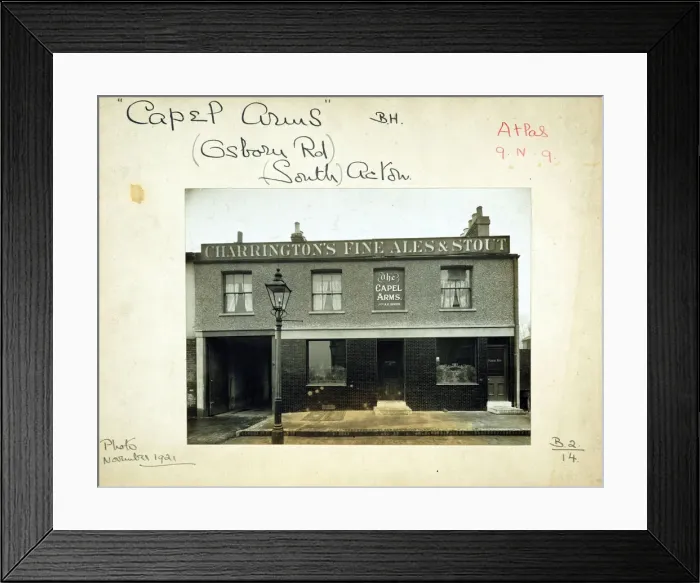 "Capel Arms" B.H.
Atlas
9. N. 9.
(Osborn Rd)
(South) Acton.
CHARRINGTON'S FINE ALES & STOUT
The
CAPEL
ARMS.
Photo
November 1921
B.2.
14.